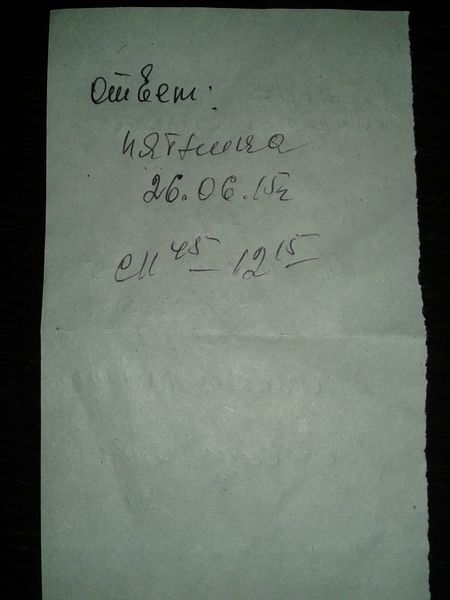 ответ:
пятница
26.06.15г
с 11 45 - 12 15